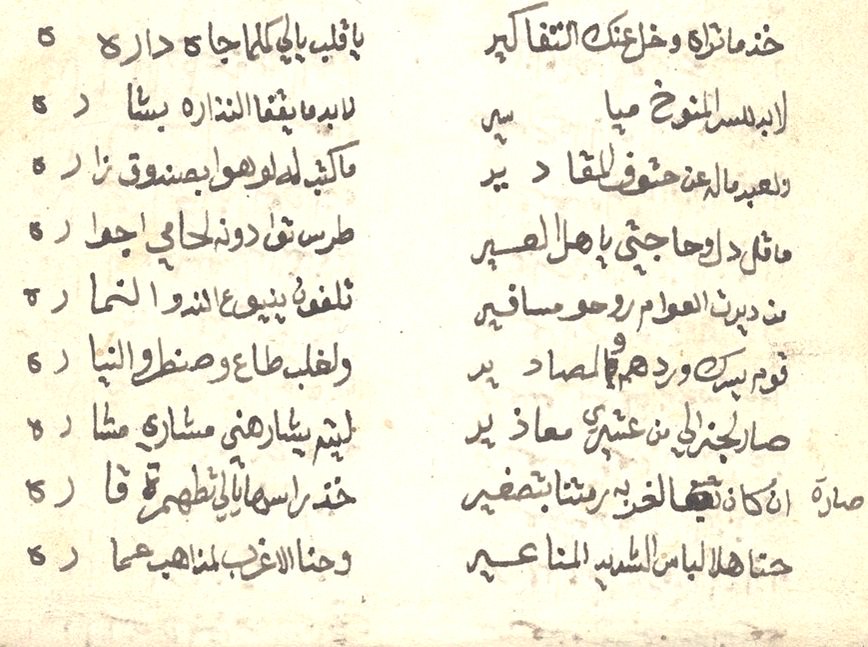 خذ ماتراه وخل عنك التفاكير ياقلب يالي كلما جاه داره ه
لابد للسر المنوخ ميا سير لابد ما يقفا النذاره بشا ره
ولعبد ماله عن حتوف المقا دير ماكتب له لوهوا بصندوق زا ره
ماقل دل وحاجتي ياهل العسير طرس توا دونه لحامي اجوا ره
من ديرت العوامر روحو مسافير تلفون ينبوع الندو النما ره
قوم يسرك وردهم والمصاد ير ولغلب طاع وصنطر والنيا ره
صار لجنرالي من عشيري معاذ ير ليتم يشار هني مشاري مشا ره
ان كان الغربه رمتنا بتصغير خذ راسها يالي تطهر قا ره
صارة
حنا هلا لباس الشديد المناعسير وحنا الاغرب لمذاهب عما ره